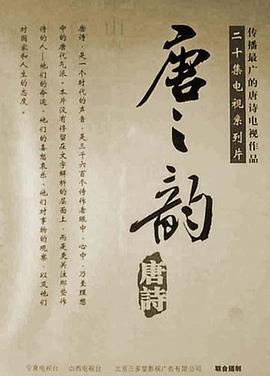 传播最广的唐诗电视作品
二十集电视系列片
唐之韵
唐詩
唐诗，是一个时代的声音，是三千六百个诗作者眼中、心中，乃至理想
中的唐代气派。本片没有停留在文字解析的层面上，而是更关注那些作
诗的人——他们的命运、他们的喜怒哀乐、他们对事物的观察，以及他们
对国家和人生的态度。
宁夏电视台　山西电视台　北京三多堂影视广告有限公司　联合摄制